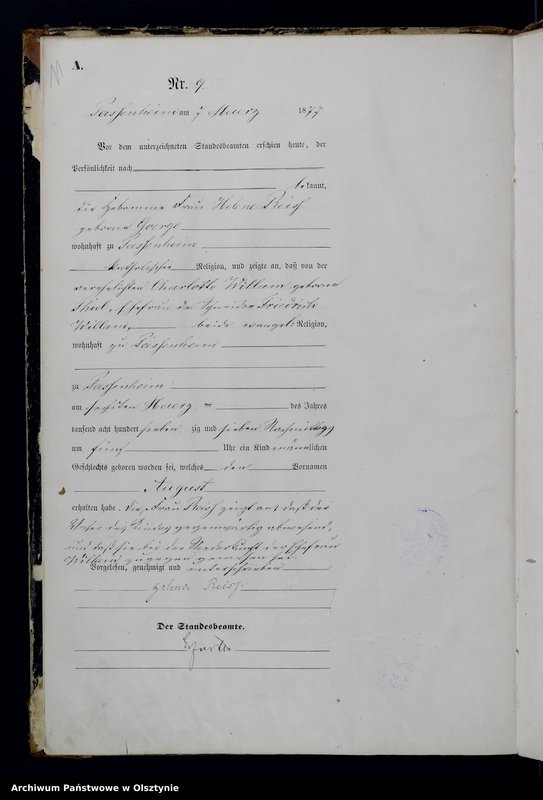 A.
Nr. 9.
Passenheim am 7 Maerz 1877
Vor dem unterzeichneten Standesbeamten erschien heute, der
Persönlichkeit nach
bekannt,
die Hebamme Frau Helene Reich
geborne George
wohnhaft zu Passenheim
katholischer Religion, und zeigte an, daß von der
verehelichten Charlotte Willam geborene
Ehefrau des Schneider Friedrich
Willam, beide evangel: Religion,
wohnhaft zu Passenheim
zu Passenheim
am sechsten Maerz des Jahres
tausend acht hundert sieben zig und sieben Nachmittags
um fünf Uhr ein Kind männlichen
Geschlechts geboren worden sei, welches den Vornamen
August
erhalten habe. Die Frau Reich zeigt an, daß der
Vater des Kindes gegenwärtig abwesend,
und daß sie bei der Niederkunft der Ehefrau
Willam zugegen gewesen sei.
Vorgelesen, genehmigt und unterschrieben
Helene Reich
Der Standesbeamte.
Archiwum Państwowe w Olsztynie